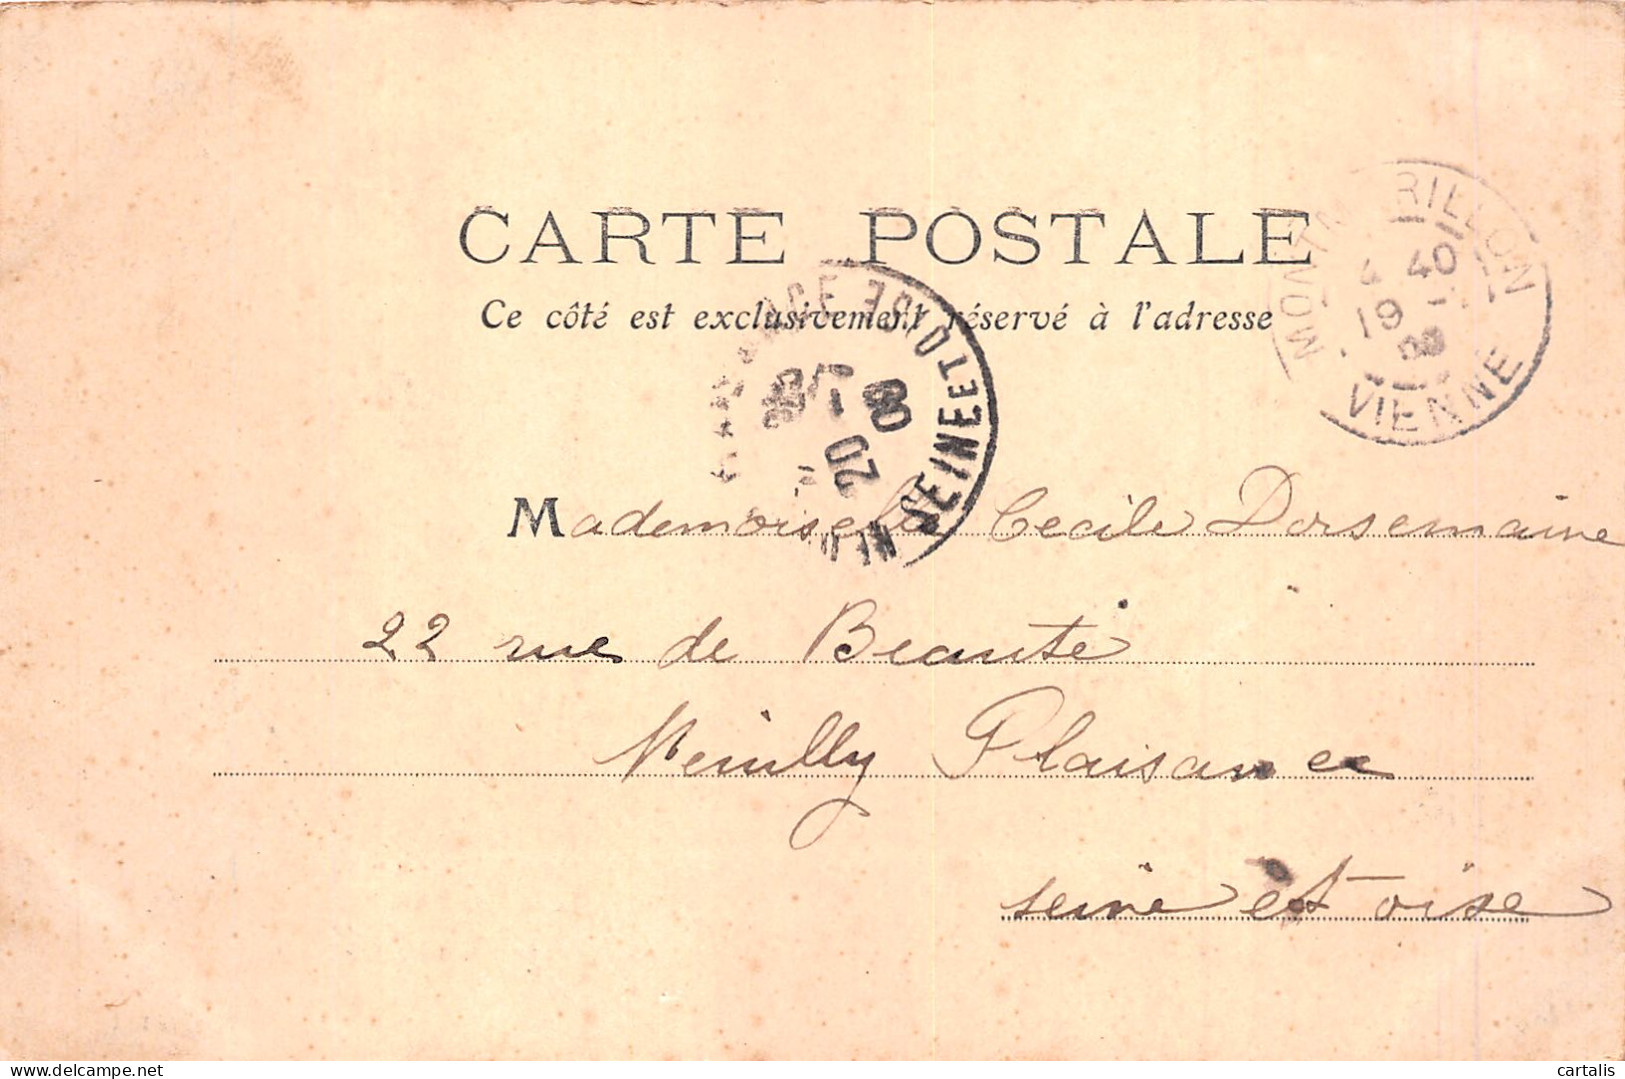 CARTE POSTALE
Ce côté est exclusivement réservé à l'adresse
MONTMORILLON
4 40
19
VIENNE
PLAISANCE
SEINE ET OISE
20
Mademoiselle Cecile Dorsemaine
22 rue de Beauté
Neuilly Plaisance
seine et oise
cartalis